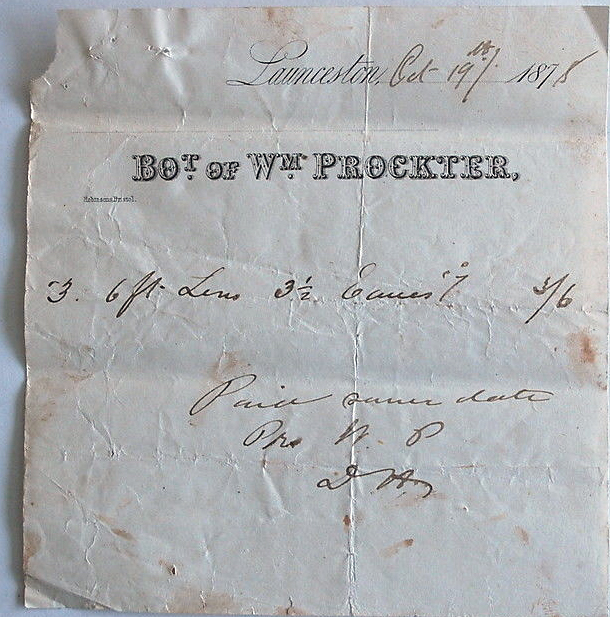 Launceston, Oct 19th/ 1878
BOT. OF WM. PROCKTER,
Robinsons, Bristol.
3. 6 ft Lens 3½ Eaves 3/6
Paid same date
Pro W. P
D H